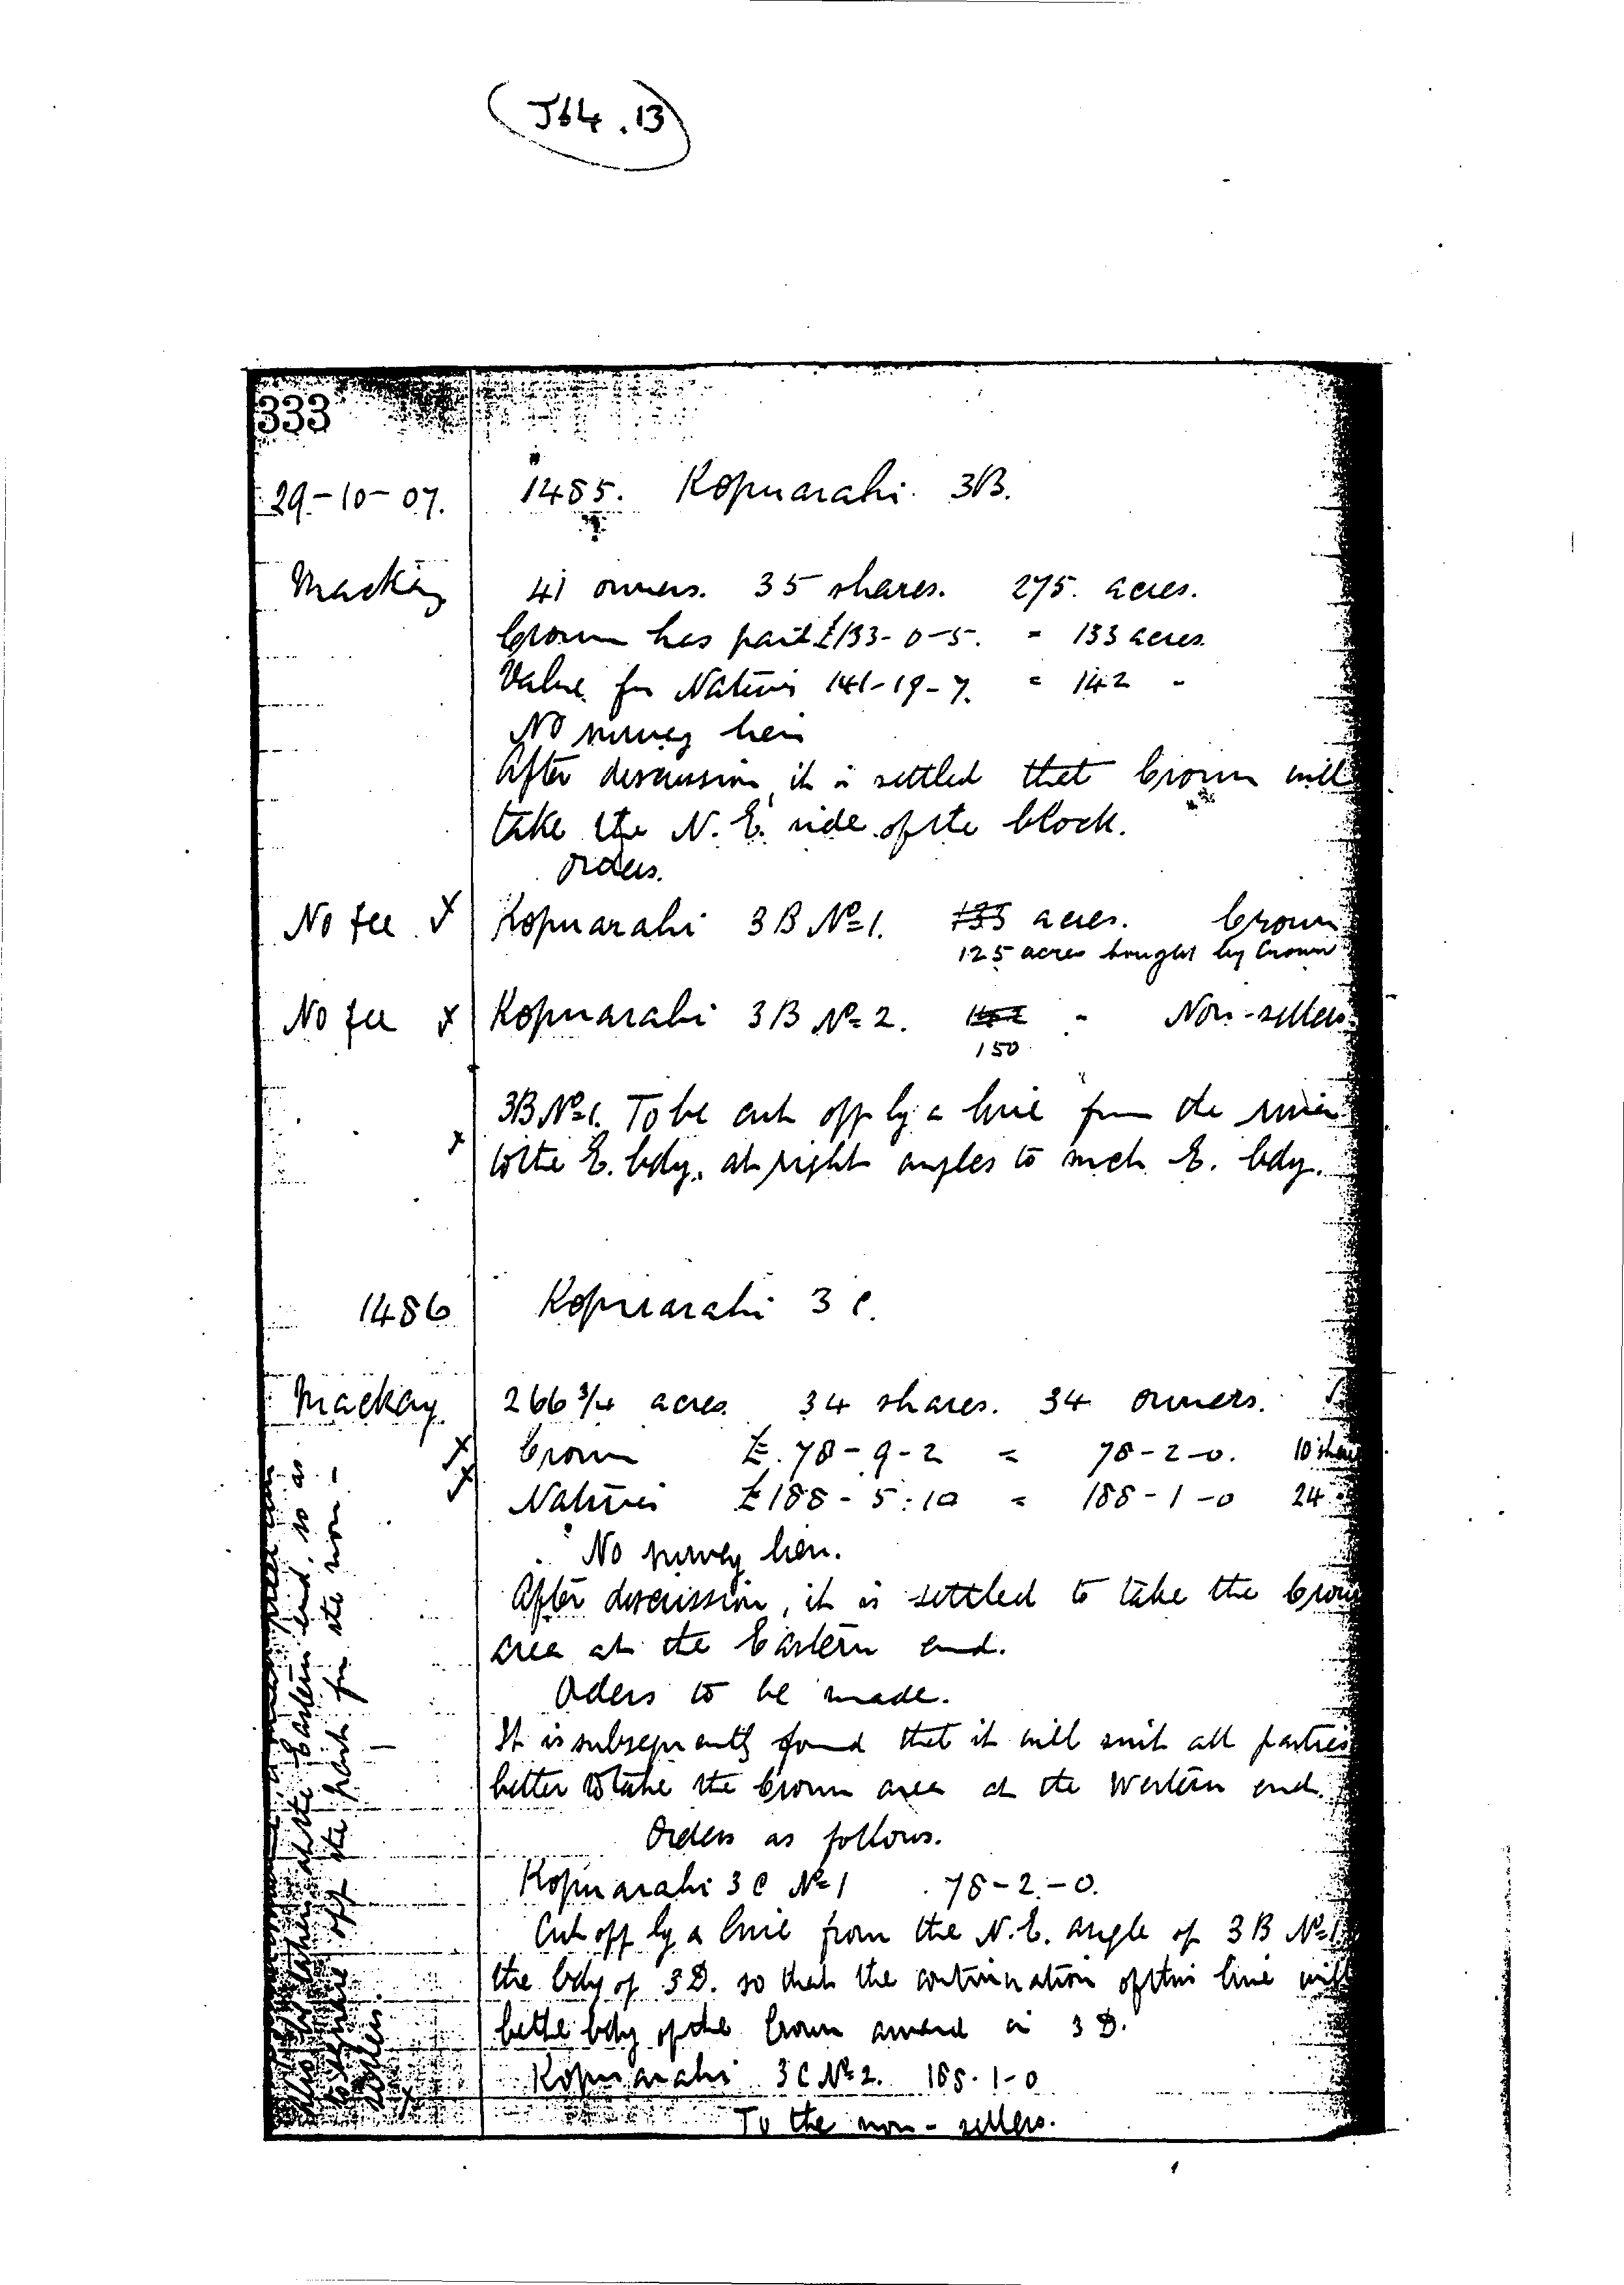 J64.13
333
29-10-07. 1485. Kopuarahi 3B.
Mackay 41 owners. 35 shares. 275. acres.
Crown has paid £133-0-5. = 133 acres.
Value for Natives 141-19-7. = 142 "
No survey lien
After discussion, it is settled that Crown will
take the N.E. side of the block.
Orders.
No fee X Kopuarahi 3B No 1. 133 acres. Crown
125 acres bought by Crown
No fee X Kopuarahi 3B No 2. 142 " Non-sellers
150
3B No 1. To be cut off by a line from the river
x to the E. bdy, at right angles to such E. bdy.
1486 Kopuarahi 3C.
Mackay 266 3/4 acres 34 shares. 34 owners.
X Crown £.78-9-2 = 78-2-0. 10 shares
X Natives £188-5:10 = 188-1-0 24
No survey lien.
After discussion, it is settled to take the Crown
area at the Eastern end.
Oders to be made.
It is subsequently found that it will suit all parties
better to take the Crown area at the Western end.
Orders as follows.
Kopuarahi 3C No 1 78-2-0.
Cut off by a line from the N.E. angle of 3B No 1
the bdy of 3D. so that the continuation of this line will
be the bdy of the Crown award in 3D.
Kopuarahi 3C No 2. 188-1-0
To the non-sellers.
at the Eastern end, so as
to square off the part for the non-
sellers.